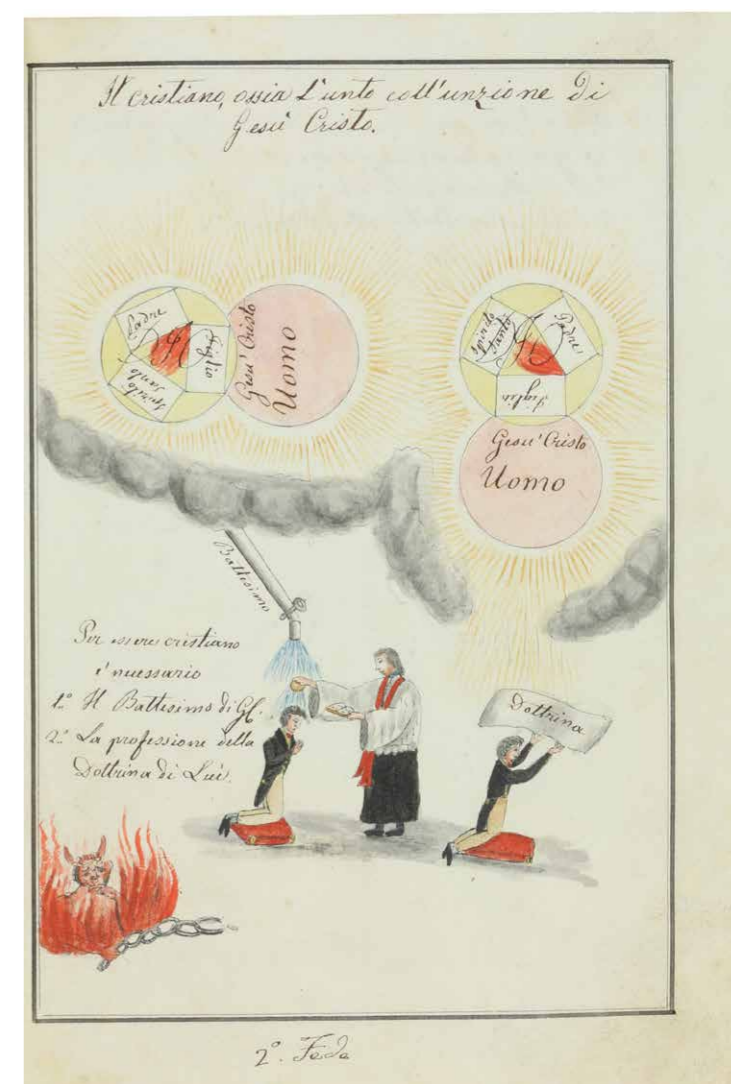 Il cristiano, ossia L'unto coll'unzione di
Gesù Cristo.
Padre
Figlio
Spirito
Santo
Gesu' Cristo
Uomo
Spirito
Santo
Padre
Figlio
Gesu' Cristo
Uomo
Battesimo
Per essere cristiano
e' necessario
1.º Il Battesimo di G.C.
2.º La professione della
Dottrina di Lui.
Dottrina
2.º Fede